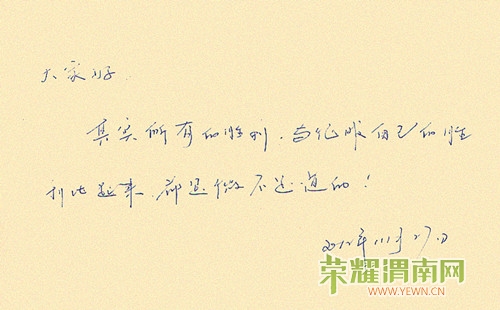 大家好
其实所有的胜利，与征服自己的胜
利比起来，都是微不足道的！
2012年11月27日
荣耀渭南网
WWW.YEWN.CN